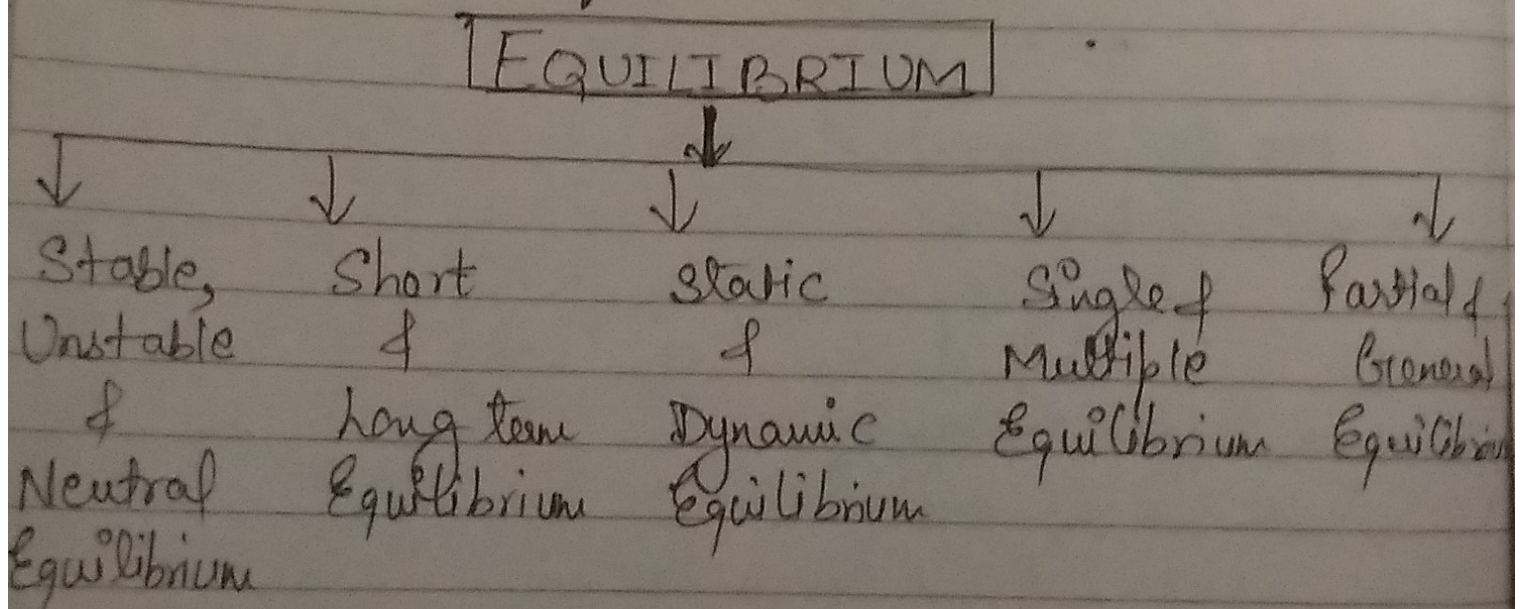 EQUILIBRIUM
Stable,
Unstable
&
Neutral
Equilibrium
Short
&
Long term
Equilibrium
Static
&
Dynamic
Equilibrium
Single &
Multiple
Equilibrium
Partial &
General
Equilibrium